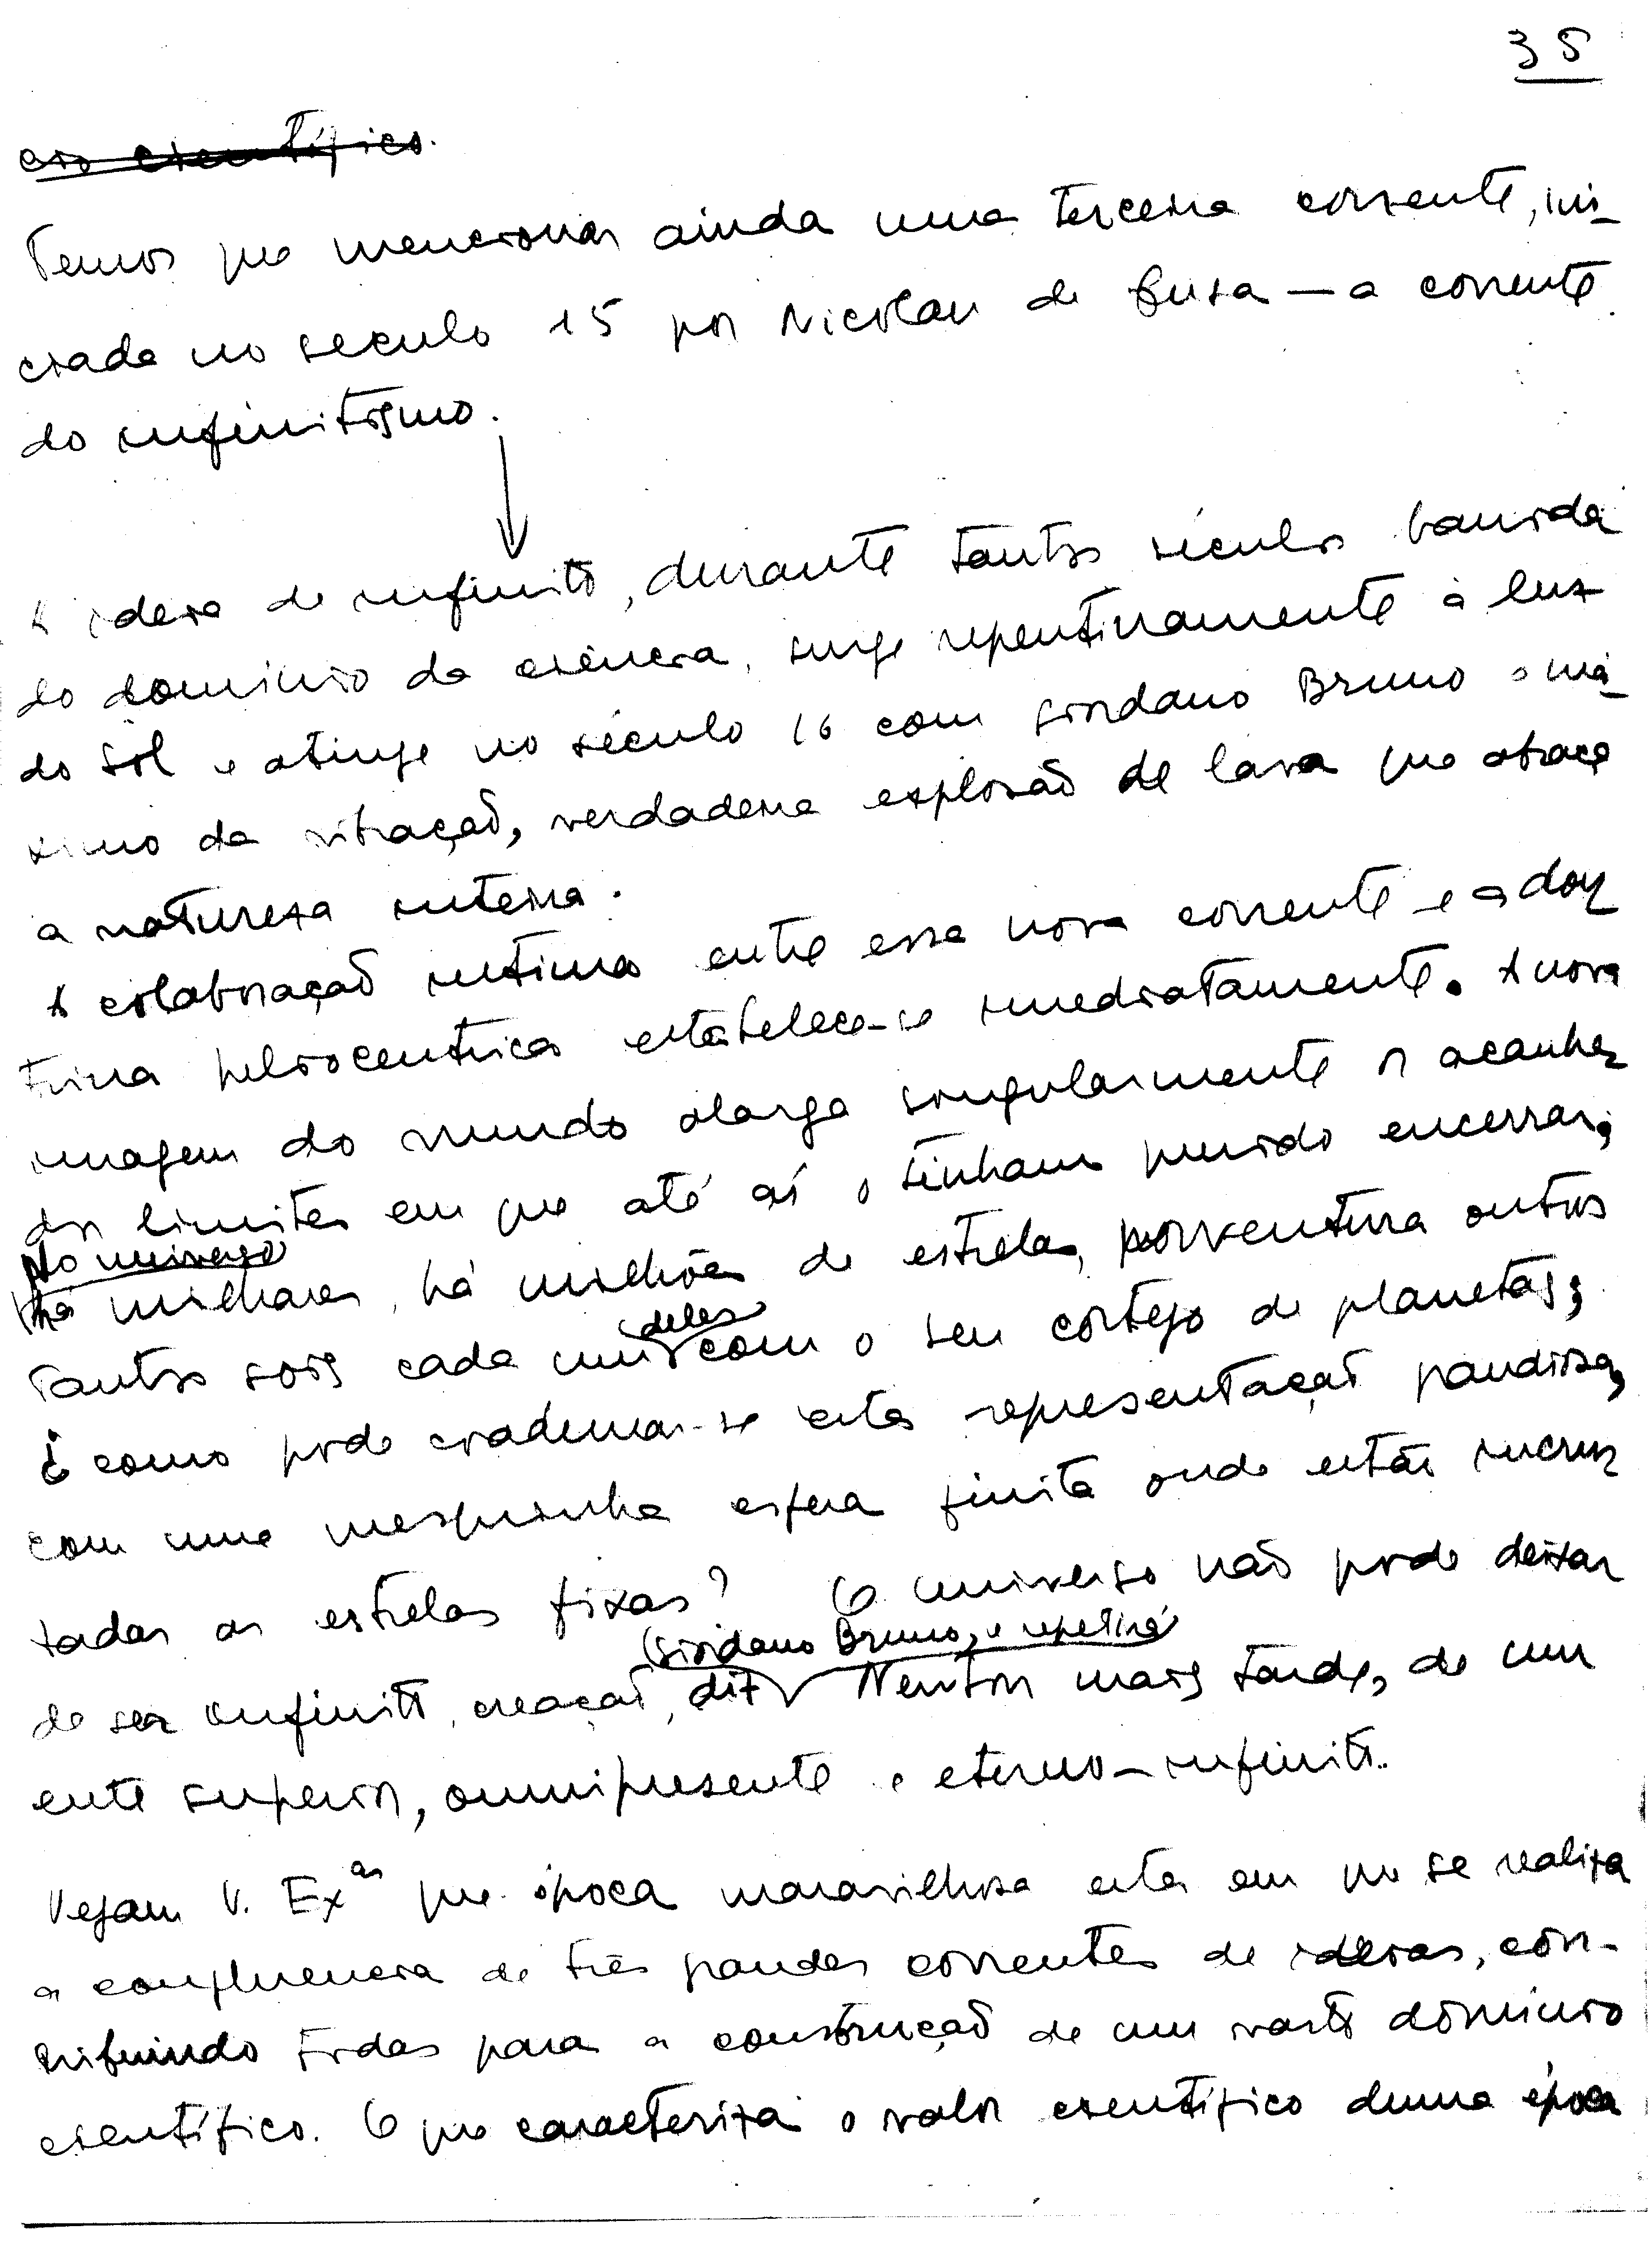 35
cio científico.
Temos que mencionar ainda uma terceira corrente, ini-
ciada no seculo 15 por Nicolau de Cusa — a corrente
do infinitismo.
A ideia de infinito, durante tantos séculos banida
do dominio da ciência, surge repentinamente à luz
do sol e atinge no século 16 com Giordano Bruno o má-
ximo da vibração, verdadeira explosão de lava que abrasa
a natureza inteira.
A colaboração intima entre essa nova corrente e a dou
trina heliocentrica estabelece-se imediatamente. A nova
imagem do mundo alarga singularmente os acanha
dos limites em que até aí o tinham querido encerrar;
No universo
há milhares, há milhões de estrelas, porventura outros
deles
tantos sois cada um com o seu cortejo de planetas;
¿ como pode coadunar-se esta representação grandiosa,
com uma mesquinha esfera finita onde estão incrus
tadas as estrelas fixas? O universo não pode deixar
Giordano Bruno, e repetirá
de ser infinito, creação, diz Newton mais tarde, de um
ente superior, omnipresente e eterno-infinito.
Vejam V. Ex.as que época maravilhosa esta em que se realiza
a confluencia de três grandes correntes de ideias, con-
tribuindo todas para a construção de um vasto dominio
científico. O que caracteriza o valor científico duma época